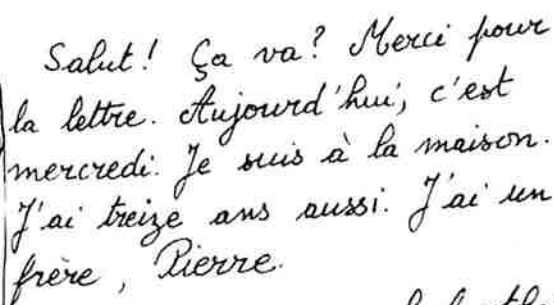 Salut! Ça va? Merci pour
la lettre. Aujourd'hui, c'est
mercredi. Je suis à la maison.
J'ai treize ans aussi. J'ai un
frère, Pierre.